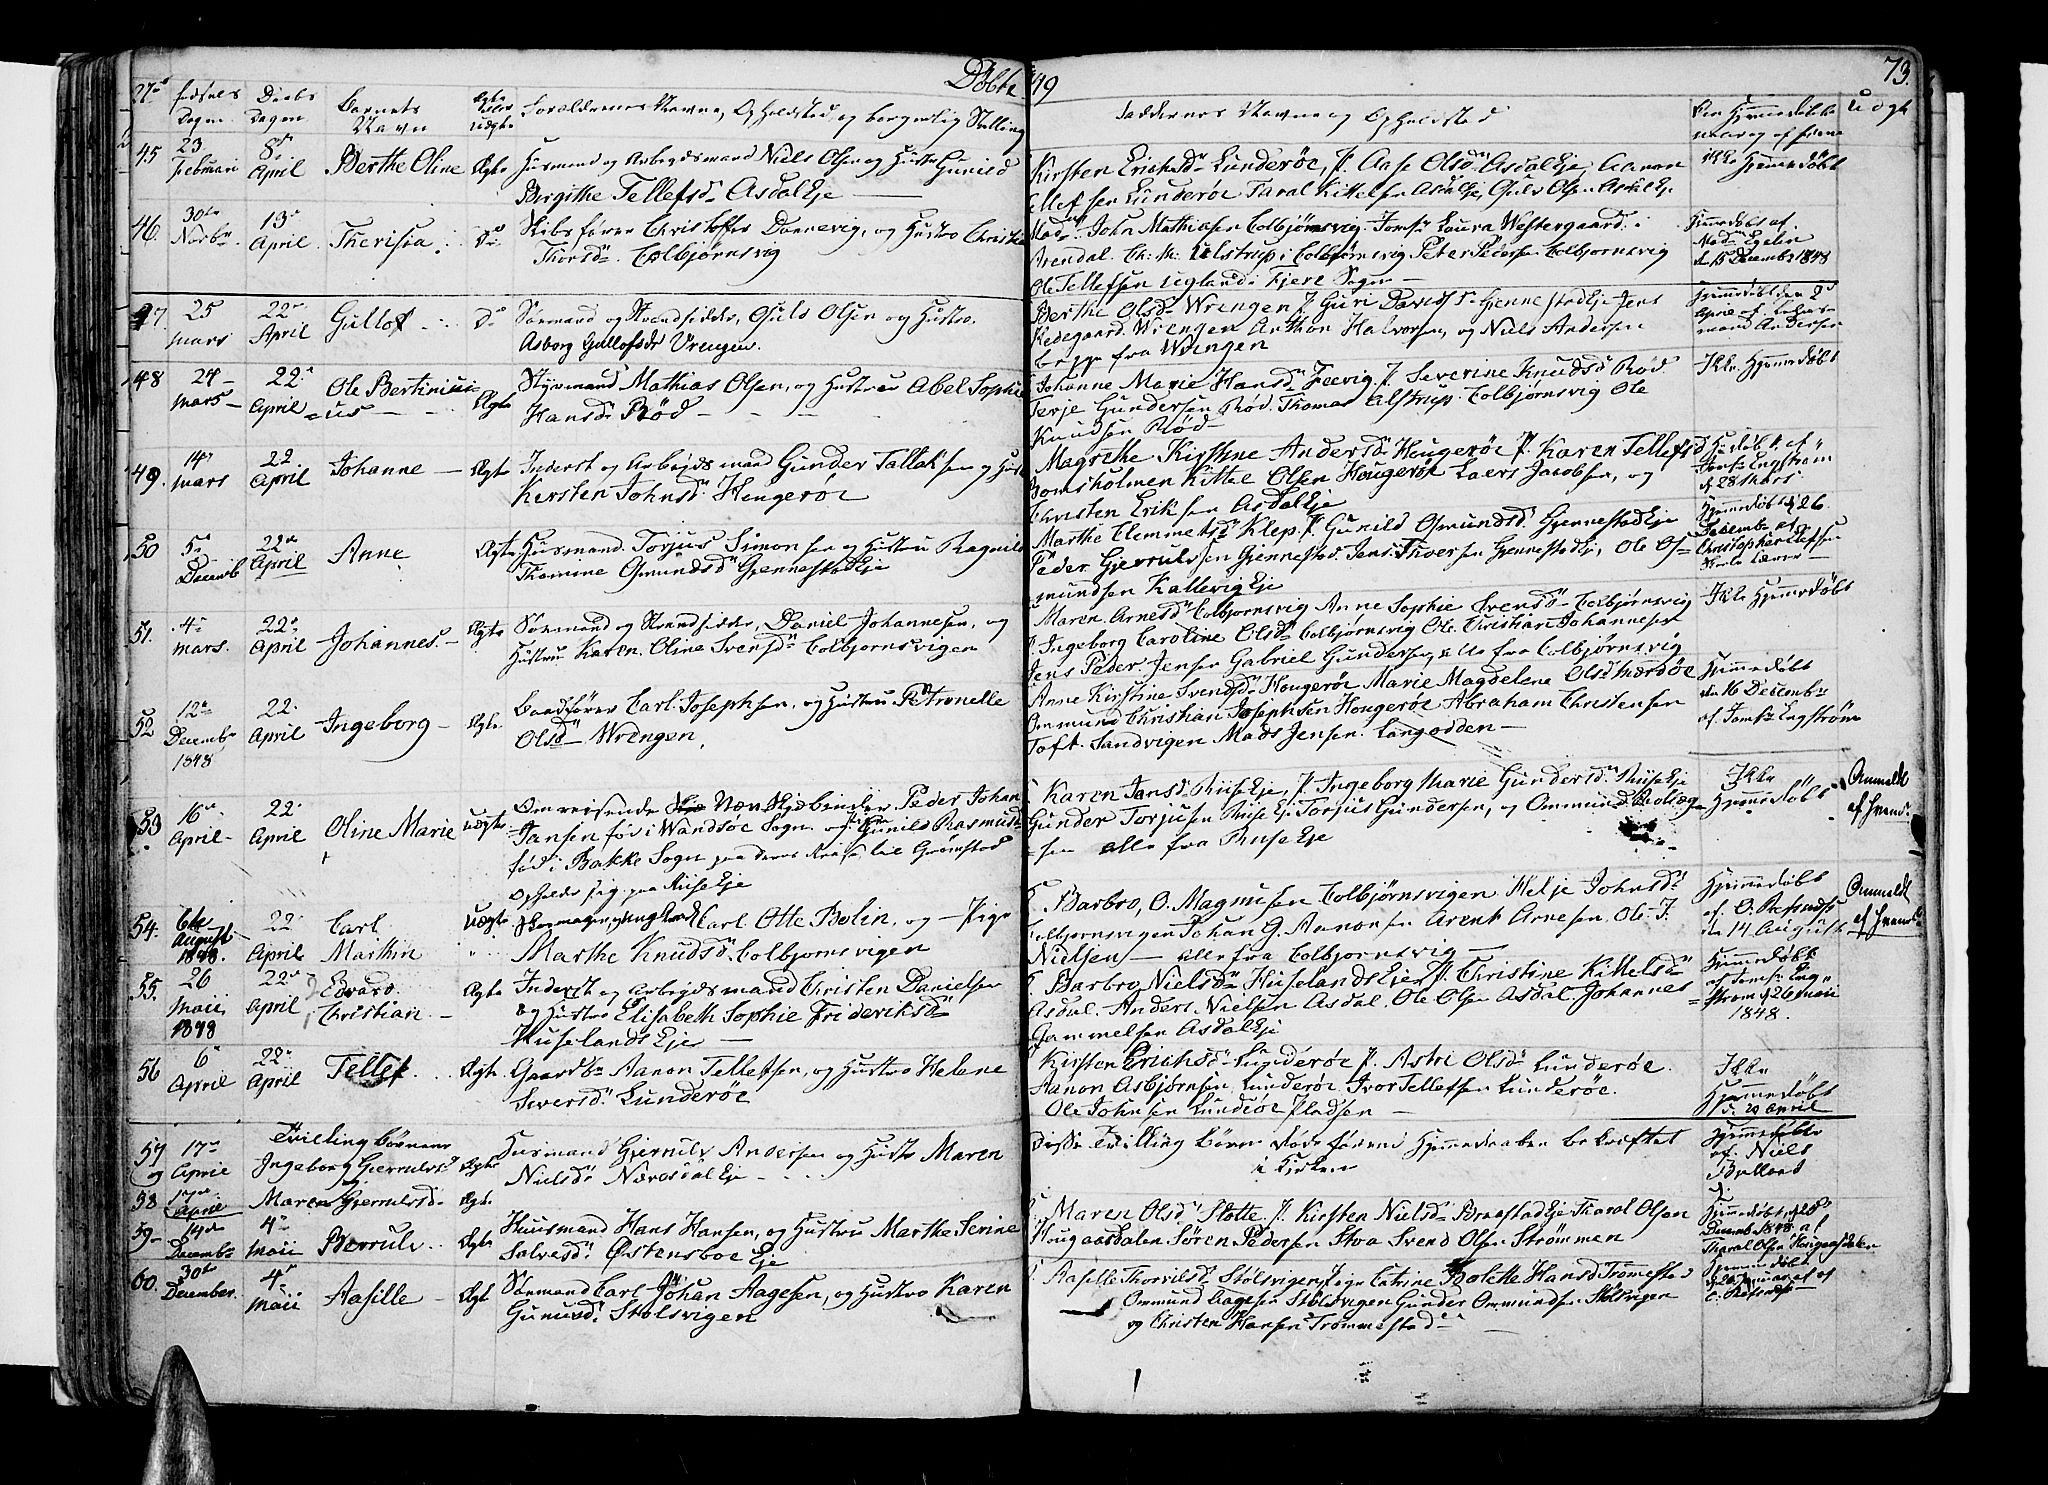 Döbte 49
73.
No fødsels Dagen. Daabs Dagen Barnets Navn Ægte eller Uægte Forældrenes Navne, Opholdsted, og borgerlig Stilling
Faddernes Navne og Opholdsted
45 23 Februari 8de April Berthe Oline Ægte Huusmand og Arbeydsmand Niels Olsen og Hustru Gunild
Birgithe Tellefsd. Asdal Eje
Kirsten Erichsd. Lunderöe, P. Aase Olsd. Asdal Eje, Aanon
Tellefsen Lunderöe Taral Kittelsen Asdal Eje, Guls Olsen Asdal Eje
Ikke Hjemmedöbt
46. 30te Novbr. 13de April Therisia Do Skibsfører Christoffer Dannevig, og Hustro Christine
Thorsd. Colbjørnsvig
Mad. John Mathiasen Colbjörnsvig. Jomf. Laura Westergaard i
Arendal. Ch. M. Ulstrup i Colbjörnsvig Peter Pedersen Colbjornsvig
Ole Tellefsen Ugland i Fjere Sogn
Hjemmedöbt af Mad. Egelin d. 15 Decembr 1848
47 25 mars 22de April Gullof Do Sömand og Strandsidder, Guls Olsen og Hustro.
Asborg Gullofsd. Vrengen.
Berthe Olsd. Wrengen P. Guri Davidsd. Gjennestad Eje Jens
Redegaard. Wrengen Anthon Halvorsen, og Niels Andersen
begge fra Wrengen
Hjemmedöbt den 2d April af
48 24 mars 22de April Ole Bertinius Styrmand Mathias Olsen, og Hustru Abel Sophie
us Ægte Hansd. Röd
Johanne Marie Hansd. Feevig P. Severine Knudsd. Röd
Terje Gundersen Röd. Thomas Alstrup. Colbjørnsvig Ole
Knudsen Röd
Ikke Hjemmedöbt
49. 14de mars 22 April Johanne Ægte Inderst og Arbejdsmand Gunder Tallaksen og Hust
Kersten Johnsd. Hougeröe
Magrethe Kirstine Andersd. Hougeröe P. Karen Tellefsd.
Bomsholmen Kittel Olsen Hougeröe Laers Jacobsen, og
Christen Eriksen Asdal Eje
Hjemdöbt af Jomf. Engström d. 28 Mars
50 5te Decemb 22de April Anne Ægte Huusmand. Torjus Simonsen og Hustru Ragnild
Thomine Omundsd. Gjennestad Eje
Marthe Clemmetsd. Klep. P. Gunild Omundsd. Gjennestad Eje
Peder Gjerrulsen Gjennestad. Jens Thorsen Gjennestad Eje, Ole O=
mundsen Kallevig Eje
Hjemmedöbt d. 26 Decemb af
51. 4de mars. 22de April Johannes. Ægte Sömand og Strandsidder, Daniel Johannesen, og
Hustru Karen. Oline Svensd. Colbjornsvigen
Maren Arnesd. Colbjornsvig Anne Sophie Svensd. Colbjörnsvig
P. Ingeborg Caroline Olsd. Colbjørnsvig Ole Christian Johannesen
Jens Peder Jensen Gabriel Gundersen, alle fra Colbjørnsvig
Ikke Hjemmedöbt
52 12te Decembr 1848 22. April Ingeborg Ægte Baadfører Carl Josephsen, og Hustru Petronelle
Olsd. Wrengen.
Anne Kirstine Svendsd. Hougeröe Marie Magdelene Olsd. Mærdöe
Ommund Christian Josephsen Hougeröe Abraham Christensen
Toft. Sandvigen Mads Jensen. Langodden
Hjemmedöbt den 16 Decembr af Jomf. Engström
53 16de April 22 April Oline Marie Uægte Omreisende Peder Johan
Jansen fød i Wandsöe Sogn og Pige Gunild Rasmusd.
fød i Bakke Sogn paa deres Reise til Grømstad
opholdt sig paa Riis Eje
Karen Jansd. Riis Eje, P. Ingeborg Marie Gundersd. Riis Eje
Gunder Torjusen Riis Eje Torjus Gundersen, og Ommund
sen alle fra Riis Eje
Ikke Hjemmedöbt Anmeldt af Svend.
54. 6te August 1848. 22 April Carl Marthin Uægte Carl Otte Bolin, og Pige
Marthe Knudsd. Colbjornsvigen
Barbro, O. Magnusen Colbjørnsvigen Helje Johnsd.
Colbjornsvigen Johan G. Aanonsen Arent Arnesen Ole J.
Nielsen alle fra Colbjornsvig
Hjemmedöbt af O. den 14 August Anmeldt af Svend
55. 26 Maii 1848 22de April Edvard Christian Ægte Inderst og Arbeydsmand Christen Danielsen
og Hustro Elisabeth Sophie Frideriksd.
Huselands Eje
Barbro Nielsd. Huselands Eje P. Christine Kittelsd.
Asdal. Anders Nielsen Asdal Ole Olsen Asdal Johannes
Gammelsen Asdal Eje
Hjemmedöbt af Jomf. Eng= ström d. 26 Maii 1848.
56 6te April 22de April Tellef Ægte Gaardbr. Aanon Tellefsen, og Hustro Helene
Siversd. Lunderöe
Kirsten Erichsd. Lunderöe P. Astri Olsd. Lunderöe.
Aanon Asbjörnsen Lunderöe Ivor Tellefsen Lunderöe.
Ole Johnsen Lunderöe Pladsen
Ikke Hjemmedöbt
57 og 17de April Tvilling Börnene Ingeborg Gjerrulsd. Ægte Huusmand Gjerruls Andersen og Hustro Maren
58 17de April Maren Gjerrulsd. Ægte Nielsd. Næresdal Eje
Disse Tvilling Börn døde førend Hjemmedaaben bekræftet
i Kirken
Hjemmedöbte af. Niels
59 14de Decembr 4de Maii Berruls Ægte Huusmand Hans Hansen, og Hustru Marthe Serine
Salvesd. Östensboe Eje
Maren Olsd. Slotte, P. Kirsten Nielsd. Braastad Eje Tharal Olsen
Hougaasdalen Sören Pedersen Stva Svend Olsen Strömmen
Hjemmedöbt, Decemb 1848 af Tharal Olsen Hougaasdalen
60. 30te December 4de Maii Aasille Ægt Sömand Carl Johan Aagesen, og Hustro Karen
Gunusd. Stolsvigen
Aasille Thorvilsd. Stölsvigen, Pige Catrine Bolette Hansd. Trommestad
Ommund Aagesen Stölsvigen Gunder Ommundsen Stölsvigen
og Christen Hansen Trommestad
Hjemmedöbt